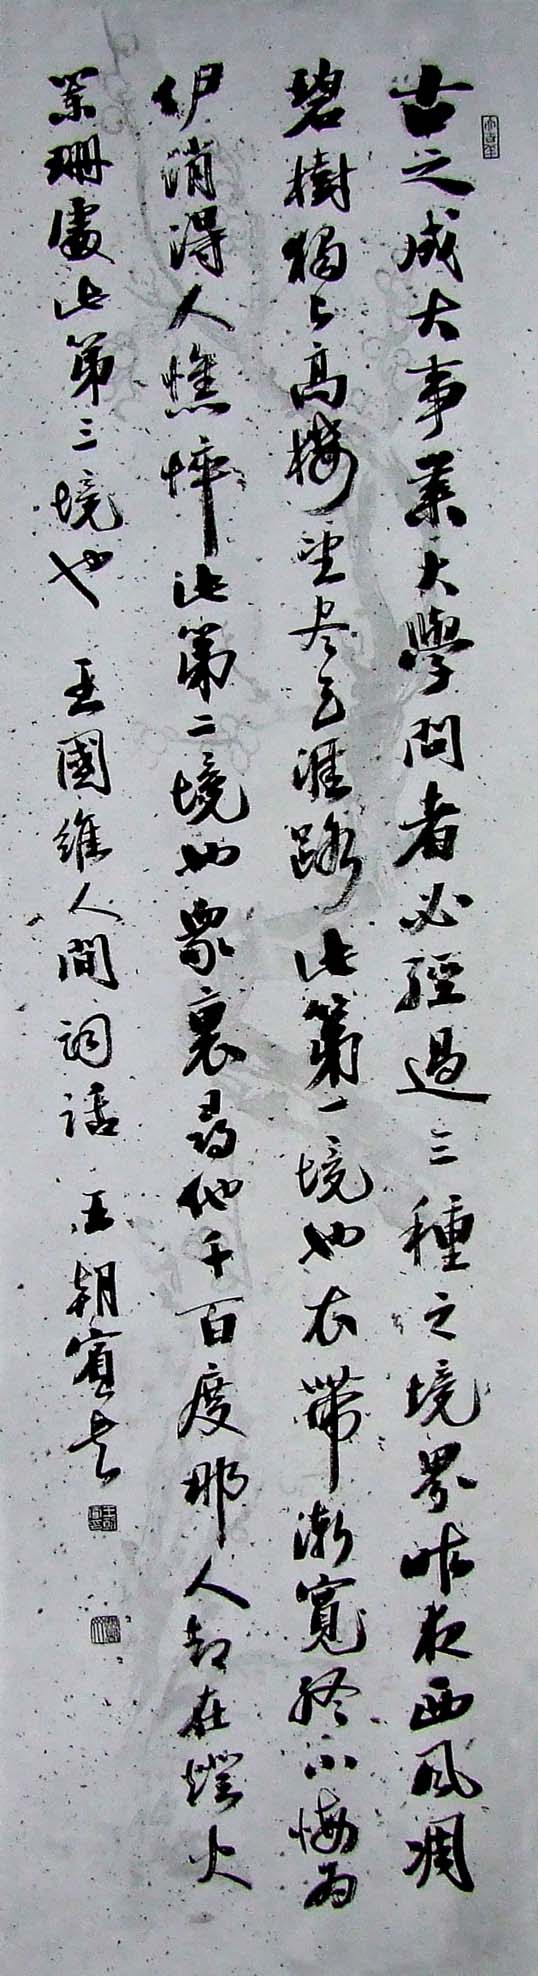 古之成大事業大學問者必經過三種之境界昨夜西風凋
碧樹獨上高樓望盡天涯路此第一境也衣帶漸寬終不悔為
伊消得人憔悴此第二境也眾裏尋他千百度那人却在燈火
闌珊處此第三境也 王國維人間詞話 王朝賓書